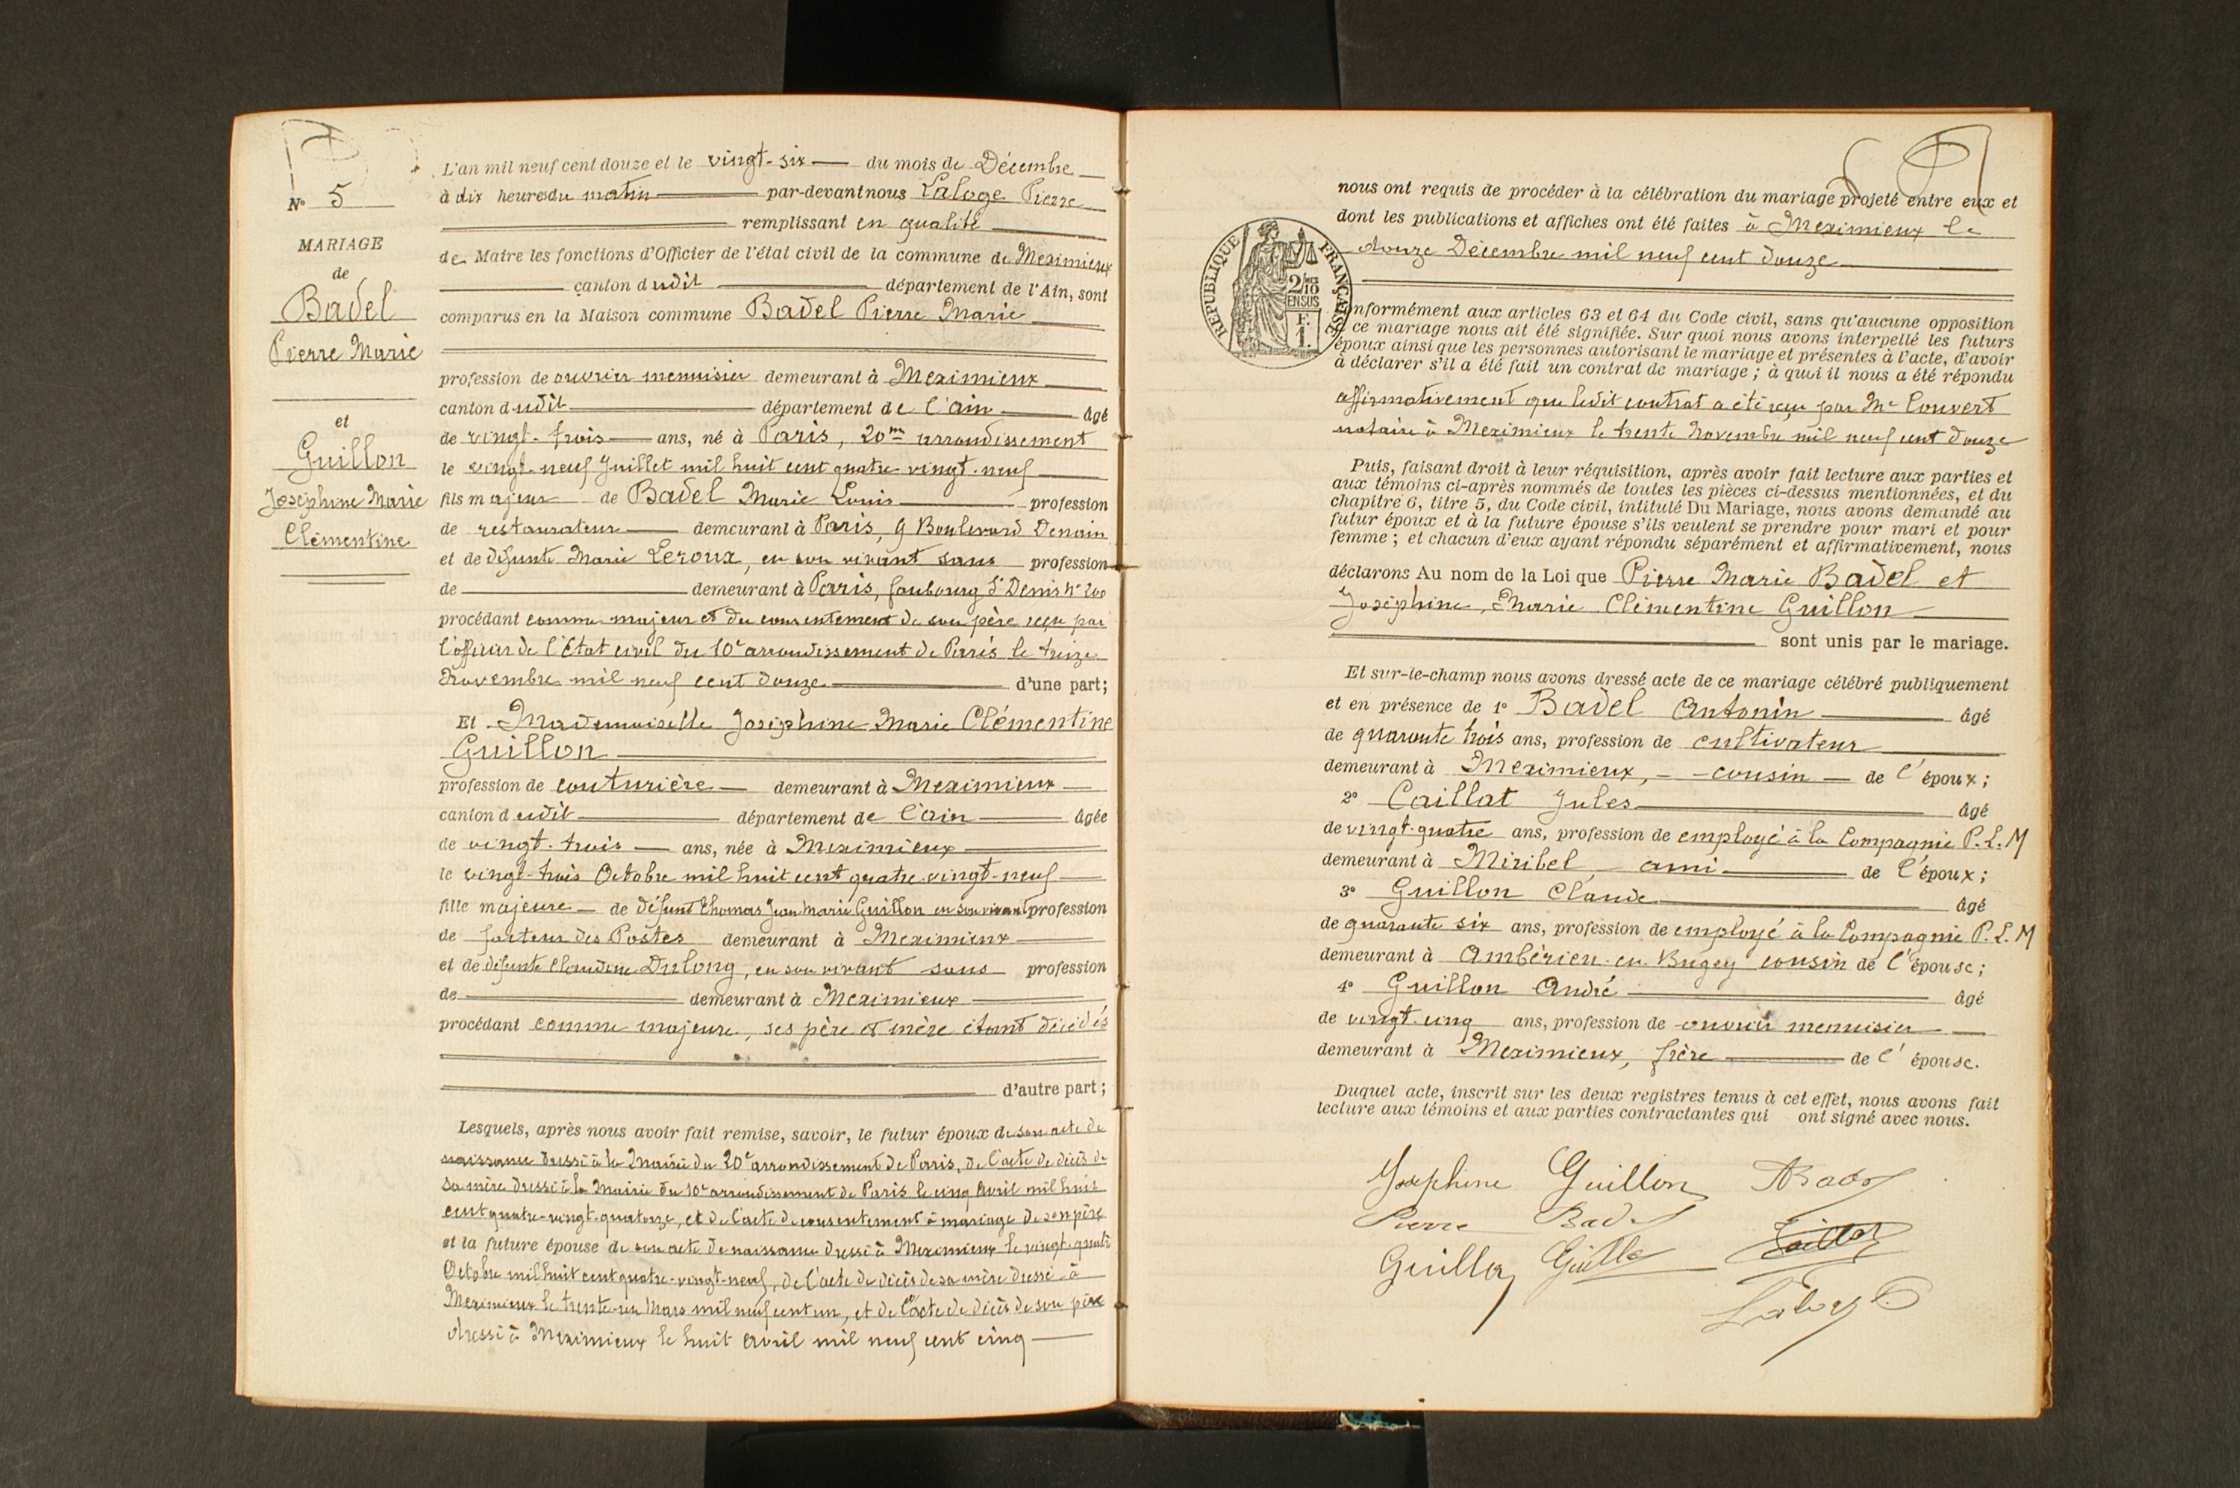 N° 5
MARIAGE
de
Badel
Pierre Marie
et
Guillon
Joséphine Marie
Clémentine
L'an mil neuf cent douze et le vingt-six du mois de Décembre
à dix heures du matin par-devant nous Laloge Pierre
remplissant en qualité
de Maire les fonctions d'Officier de l'état civil de la commune de Meximieux
canton dudit département de l'Ain, sont
comparus en la Maison commune Badel Pierre Marie
profession de ouvrier menuisier demeurant à Meximieux
canton dudit département de l'Ain âgé
de vingt-trois ans, né à Paris, 20me arrondissement
le vingt-neuf Juillet mil huit cent quatre vingt-neuf
fils majeur de Badel Marie Louis profession
de restaurateur demeurant à Paris, 9 Boulevard Denain
et de défunte Marie Leroux, en son vivant sans profession
de demeurant à Paris, faubourg St Denis N° 200
procédant comme majeur et du consentement de son père reçu par
l'officier de l'Etat civil du 10e arrondissement de Paris le treize
Novembre mil neuf cent douze d'une part;
Et Mademoiselle Joséphine Marie Clémentine
Guillon
profession de couturière demeurant à Meximieux
canton dudit département de l'Ain âgée
de vingt-trois ans, née à Meximieux
le vingt-trois Octobre mil huit cent quatre-vingt-neuf
fille majeure de défunt Thomas Jean Marie Guillon en son vivant profession
de facteur des Postes demeurant à Meximieux
et de défunte Claudine Dulong, en son vivant sans profession
de demeurant à Meximieux
procédant comme majeure, ses père et mère étant décédés
d'autre part;
Lesquels, après nous avoir fait remise, savoir, le futur époux de son acte de
naissance dressé à la Mairie du 20e arrondissement de Paris, de l'acte de décès de
sa mère dressé à la Mairie du 10e arrondissement de Paris le cinq Avril mil huit
cent quatre-vingt-quatorze, et de l'acte de consentement à mariage de son père
et la future épouse de son acte de naissance dressé à Meximieux le vingt-quatre
Octobre mil huit cent quatre-vingt-neuf, de l'acte de décès de sa mère dressé à
Meximieux le trente-un Mars mil neuf cent un, et de l'acte de décès de son père
dressé à Meximieux le huit Avril mil neuf cent cinq
nous ont requis de procéder à la célébration du mariage projeté entre eux et
dont les publications et affiches ont été faites à Meximieux le
douze Décembre mil neuf cent douze
RÉPUBLIQUE FRANÇAISE
2/10
EN SUS
F.
1.
nformément aux articles 63 et 64 du Code civil, sans qu'aucune opposition
ce mariage nous ait été signifiée. Sur quoi nous avons interpellé les futurs
époux ainsi que les personnes autorisant le mariage et présentes à l'acte, d'avoir
à déclarer s'il a été fait un contrat de mariage; à quoi il nous a été répondu
affirmativement que ledit contrat a été reçu par Me Couvert
notaire à Meximieux le trente Novembre mil neuf cent douze
Puis, faisant droit à leur réquisition, après avoir fait lecture aux parties et
aux témoins ci-après nommés de toutes les pièces ci-dessus mentionnées, et du
chapitre 6, titre 5, du Code civil, intitulé Du Mariage, nous avons demandé au
futur époux et à la future épouse s'ils veulent se prendre pour mari et pour
femme; et chacun d'eux ayant répondu séparément et affirmativement, nous
déclarons Au nom de la Loi que Pierre Marie Badel et
Joséphine, Marie Clémentine Guillon
sont unis par le mariage.
Et sur-le-champ nous avons dressé acte de ce mariage célébré publiquement
et en présence de 1° Badel Antonin âgé
de quarante trois ans, profession de cultivateur
demeurant à Meximieux, cousin de l'époux;
2° Caillat Jules âgé
de vingt-quatre ans, profession de employé à la Compagnie P.L.M
demeurant à Miribel ami de l'époux;
3° Guillon Claude âgé
de quarante six ans, profession de employé à la Compagnie P.L.M
demeurant à Ambérieu-en-Bugey cousin de l'épouse;
4° Guillon André âgé
de vingt-cinq ans, profession de ouvrier menuisier
demeurant à Meximieux, frère de l'épouse.
Duquel acte, inscrit sur les deux registres tenus à cet effet, nous avons fait
lecture aux témoins et aux parties contractantes qui ont signé avec nous.
Joséphine Guillon ABadel
Pierre Badel
Guillon Guillon Caillat
Laloge